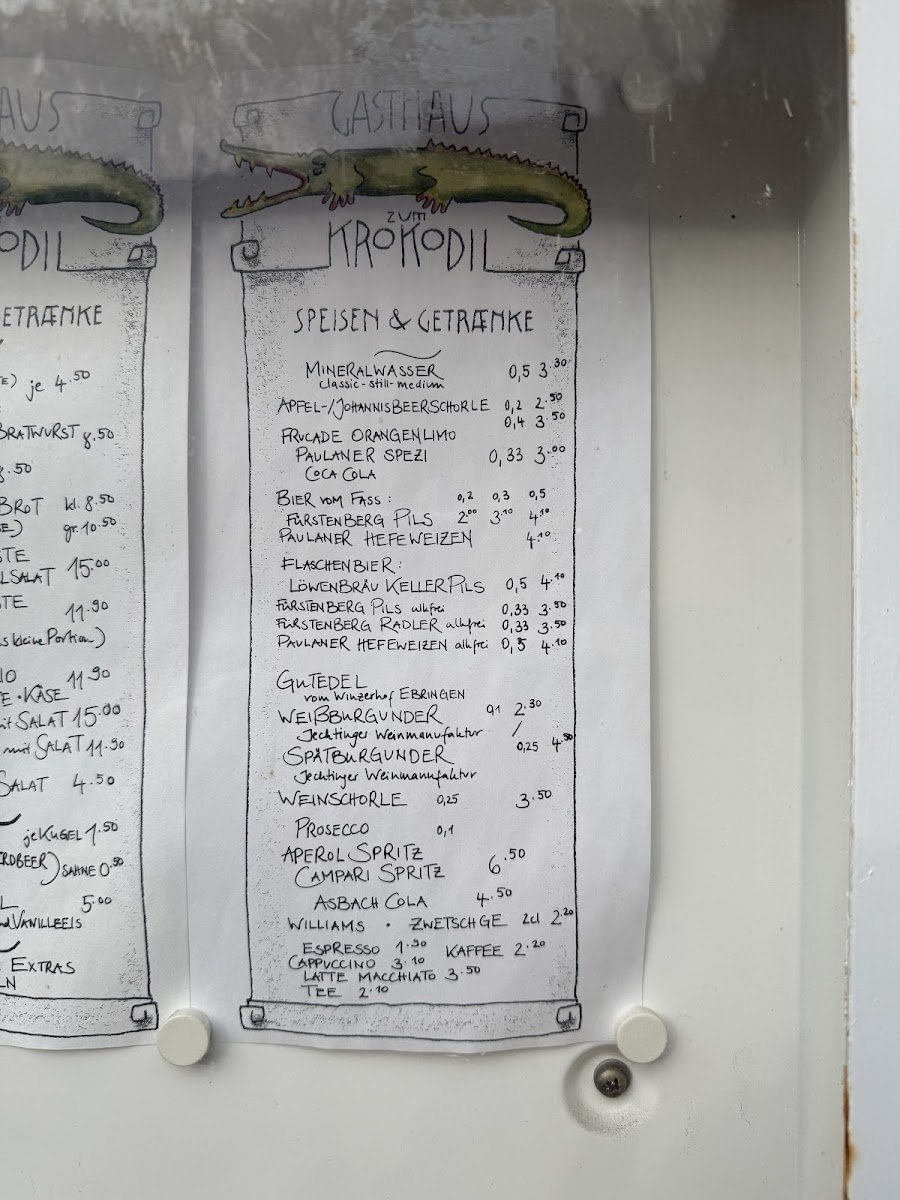 AUS
ODIL
ETRÆNKE
je 4.50
BRATWURST 8.50
8.50
BROT kl. 8.50
gr. 10.50
STE
LSALAT 15.00
STE
11.90
kleine Portion)
11.90
E • KÄSE
mit SALAT 15.00
mit SALAT 11.90
SALAT 4.50
je KUGEL 1.50
RDBEER) SAHNE 0.50
5.00
nd VANILLEEIS
EXTRAS
LN
GASTHAUS
ZUM
KROKODIL
SPEISEN & GETRÆNKE
MINERALWASSER 0,5 3.30
classic - still - medium
APFEL-/JOHANNISBEERSCHORLE 0,2 2.50
0,4 3.50
FRUCADE ORANGENLIMO
PAULANER SPEZI 0,33 3.00
COCA COLA
BIER VOM FASS : 0,2 0,3 0,5
FÜRSTENBERG PILS 2.00 3.10 4.10
PAULANER HEFEWEIZEN 4.10
FLASCHENBIER:
LÖWENBRÄU KELLERPILS 0,5 4.10
FÜRSTENBERG PILS alkfrei 0,33 3.50
FÜRSTENBERG RADLER alkfrei 0,33 3.50
PAULANER HEFEWEIZEN alkfrei 0,5 4.10
GUTEDEL
vom Winzerhof EBRINGEN
WEIßBURGUNDER 0,1 2.30
Jechtinger Weinmanufaktur /
SPÄTBURGUNDER 0,25 4.50
Jechtinger Weinmanufaktur
WEINSCHORLE 0,25 3.50
PROSECCO 0,1
APEROL SPRITZ 6.50
CAMPARI SPRITZ
ASBACH COLA 4.50
WILLIAMS • ZWETSCHGE 2cl 2.20
ESPRESSO 1.90 KAFFEE 2.20
CAPPUCCINO 3.10
LATTE MACCHIATO 3.50
TEE 2.10